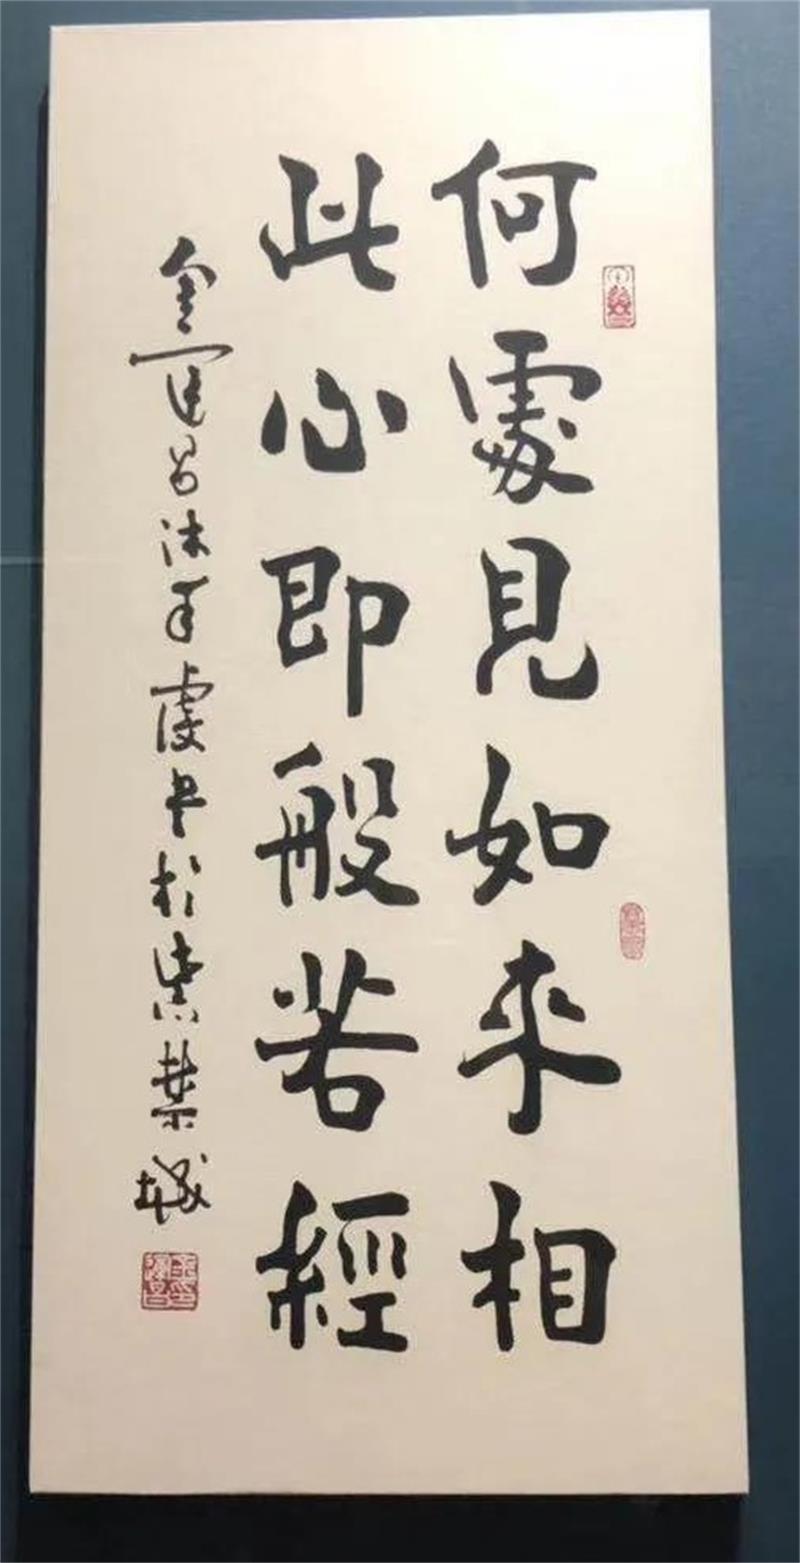 何處見如來相
此心即般若經
金運昌沐手虔書於紫禁城